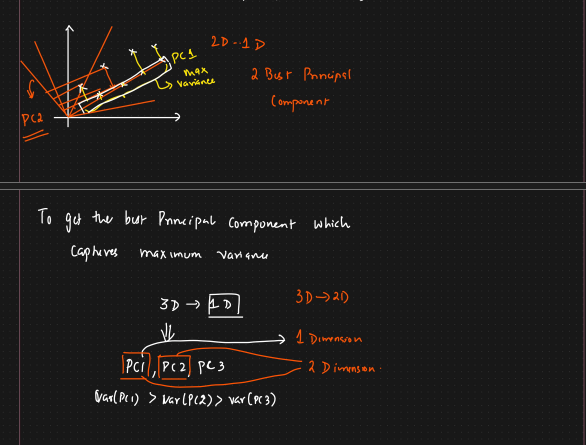 PC1
max
variance
PC2
2D -- 1D
2 Best Principal
Component
To get the best Principal component which
captures maximum variance
3D → 1D
3D → 2D
1 Dimension
PC1, PC2, PC3
2 Dimension.
Var(PC1) > Var(PC2) > Var(PC3)